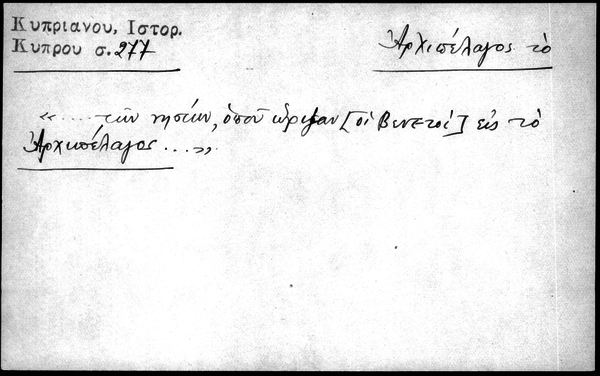 Κυπριανου, Ιστορ.
Κυπρου σ. 277
Ἀρχιπέλαγος τὸ
«.....τῶν νησίων, ὁποῦ ὥριζαν [οἱ Βενετοί] εἰς τὸ
Ἀρχιπέλαγος ...».